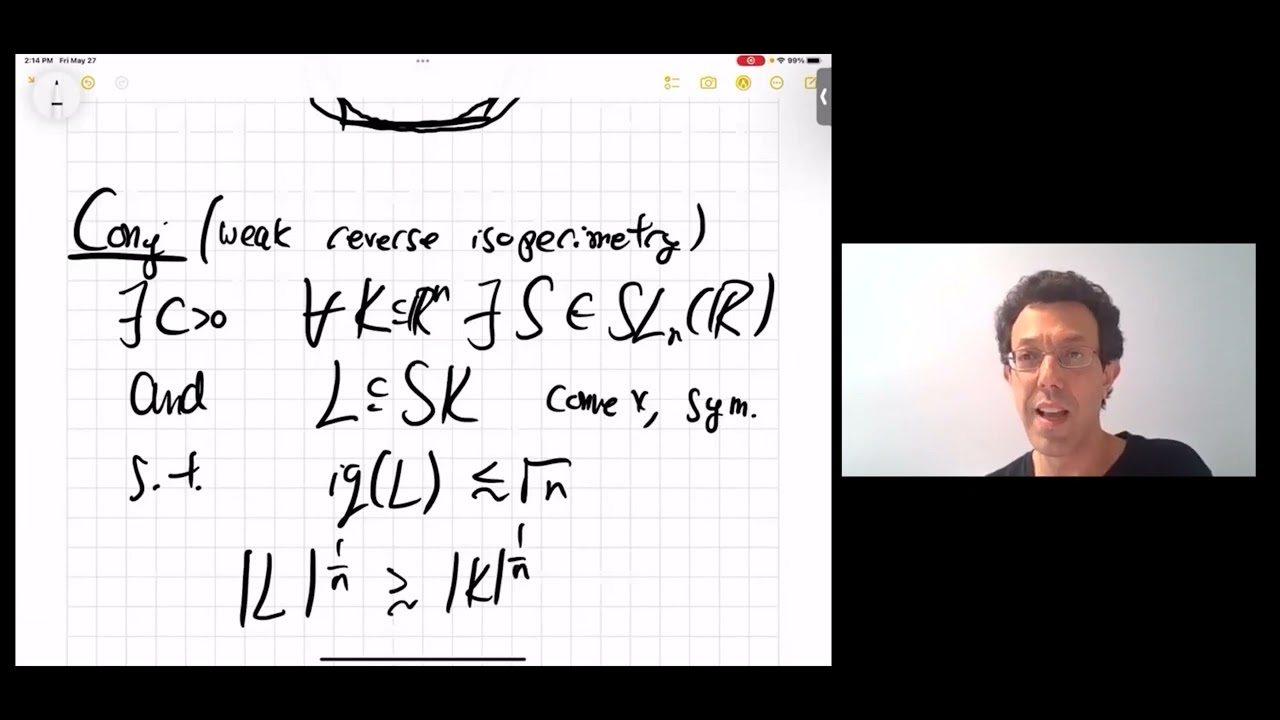 2:14 PM Fri May 27
99%
Conj (weak reverse isoperimetry)
∃ C>0 ∀ K⊆ℝⁿ ∃ S ∈ SLₙ(ℝ)
and L ⊆ SK convex, sym.
s.t. iq(L) ≲ √n
|L|^{1/n} ≳ |K|^{1/n}